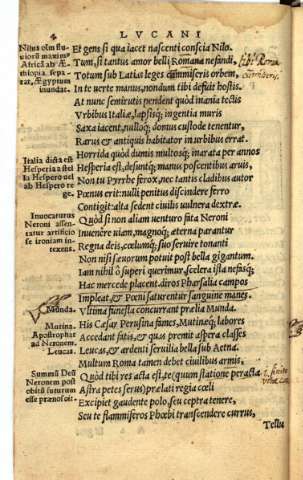 4 LVCANI
Nilus olim flu-
uiorũ maxim9
Africã ab Æ-
thiopia sepa-
rat, Ægyptum
inundat.
Et gens si qua iacet nascenti conscia Nilo.
Tum, si tantus amor belli Romana nefandi,
Totum sub Latias leges cũmiseris orbem,
In te uerte manus, nondum tibi defuit hostis.
At nunc semirutis pendent quòd mœnia tectis
Vrbibus Italiæ, lapsisq; ingentia muris
Saxa iacent, nulloq; domus custode tenentur,
Rarus & antiquis habitator in urbibus errat:
Italia dicta est
Hesperia a fibi
la Hespero uel
ab Hespero re
ge.
Horrida quòd dumis multosq; inarata per annos
Hesperia est, desuntq; manus poscentibus aruis,
Non tu Pyrrhe ferox, nec tantis cladibus autor
Pœnus erit: nulli penitus discindere ferro
Contigit: alta sedent ciuilis uulnera dextræ.
Inuocaturus
Neroni assen-
tatur artificio
se ironiam in-
texens.
Quòd si non aliam uenturo fata Neroni
Inuenêre uiam, magnoq; æterna parantur
Regna deis, cœlumq; suo seruire tonanti
Non nisi sæuorum potuit post bella gigantum.
Iam nihil ô superi querimur, scelera ista nefasq;
Hac mercede placent. diros Pharsalia campos
Impleat, & Pœni saturentur sanguine manes.
Munda.
Vltima funesta concurrant prælia Munda.
Mutina.
Apostrophe
ad Neronem
Leucas.
His Cæsar Perusina fames, Mutinæq; labores
Accedant fatis, & quas premit aspera classes
Leucas, & ardenti seruilia bella sub Aetna.
Multum Roma tamen debet ciuilibus armis,
Summũ Deũ
Neronem post
obitũ futurum
esse præconcit.
Quòd tibi res acta est. te (quum statione peracta
Astra petes serus) prælati regia cœli
Excipiet gaudente polo, seu sceptra tenere,
Seu te flammiferos Phœbi transcendere currus,
Tellu